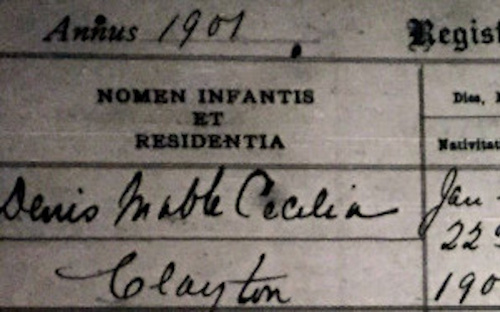 Annus 1901 Regist
NOMEN INFANTIS
ET
RESIDENTIA
Dies,
Nativitat
Denis Mable Cecilia
Jan
22
Clayton
190